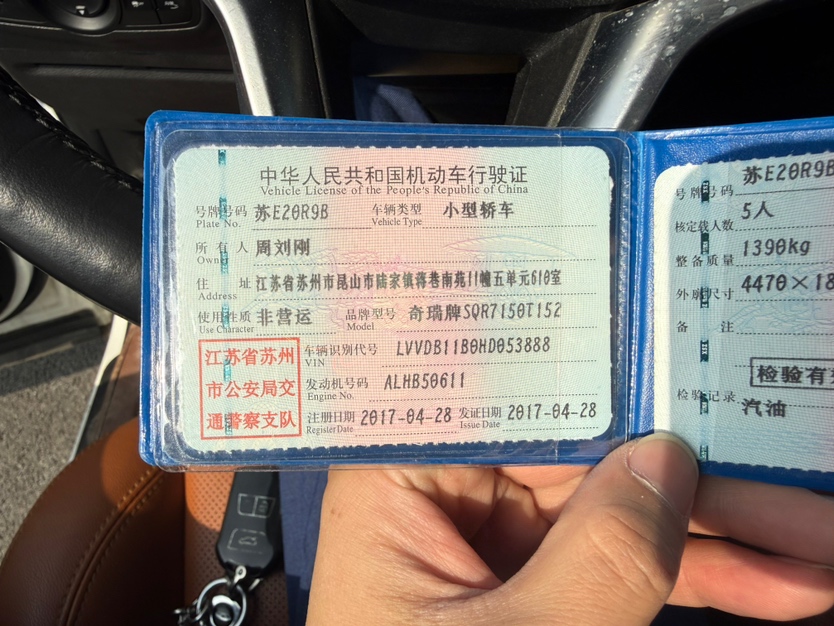 中华人民共和国机动车行驶证
Vehicle License of the People's Republic of China
号牌号码 苏E20R9B 车辆类型 小型轿车
Plate No. Vehicle Type
所有人 周刘刚
Owner
住址 江苏省苏州市昆山市陆家镇蒋巷南苑11幢五单元610室
Address
使用性质 非营运 品牌型号 奇瑞牌SQR7150T152
Use Character Model
江苏省苏州
市公安局交
通警察支队
车辆识别代号 LVVDB11B0HD053888
VIN
发动机号码 ALHB50611
Engine No.
注册日期 2017-04-28 发证日期 2017-04-28
Register Date Issue Date
号牌号码 苏E20R9B
核定载人数 5人
整备质量 1390kg
外廓尺寸 4470×18
备注
检验有
检验记录
汽油